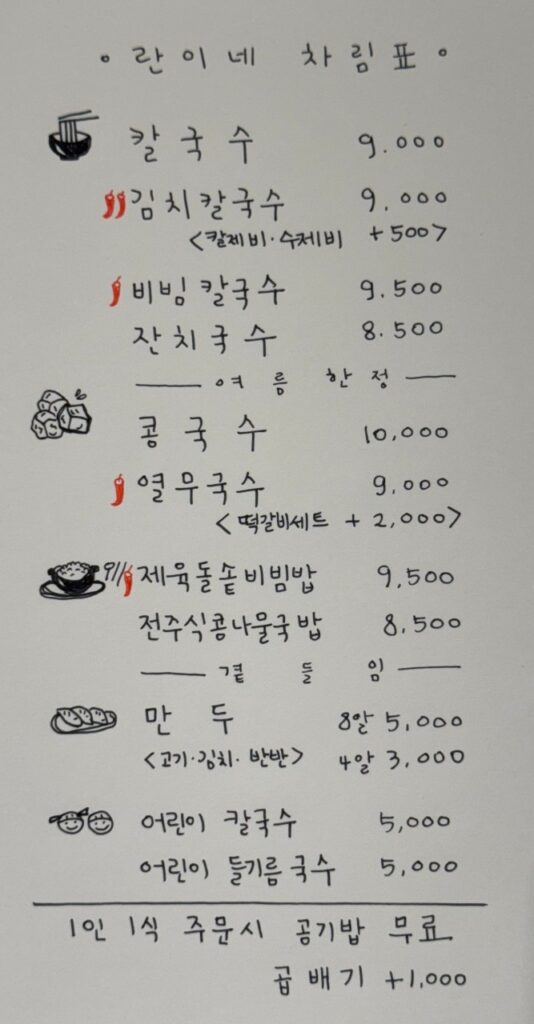 란이네 차림표
칼국수 9.000
김치칼국수 9.000
<칼제비·수제비 +500>
비빔칼국수 9.500
잔치국수 8.500
여름 한정
콩국수 10,000
열무국수 9,000
<떡갈비세트 +2,000>
제육돌솥비빔밥 9,500
전주식콩나물국밥 8,500
곁들임
만두 8알 5,000
<고기·김치·반반> 4알 3,000
어린이 칼국수 5,000
어린이 들기름국수 5,000
1인 1식 주문시 공기밥 무료
곱배기 +1,000